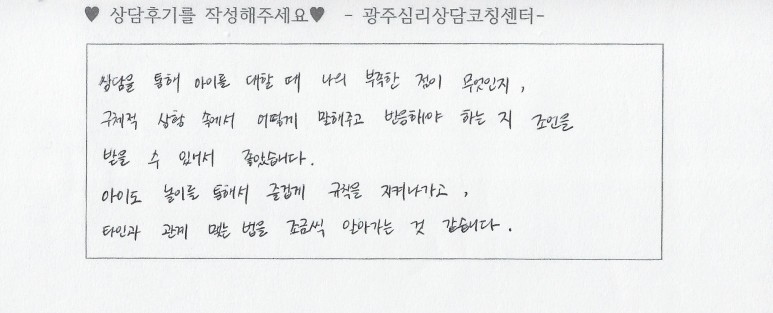 ♥ 상담후기를 작성해주세요♥ - 광주심리상담코칭센터-
상담을 통해 아이를 대할 때 나의 부족한 점이 무엇인지,
구체적 상황 속에서 어떻게 말해주고 반응해야 하는 지 조언을
받을 수 있어서 좋았습니다.
아이도 놀이를 통해서 즐겁게 규칙을 지켜나가고,
타인과 관계 맺는 법을 조금씩 알아가는 것 같습니다.